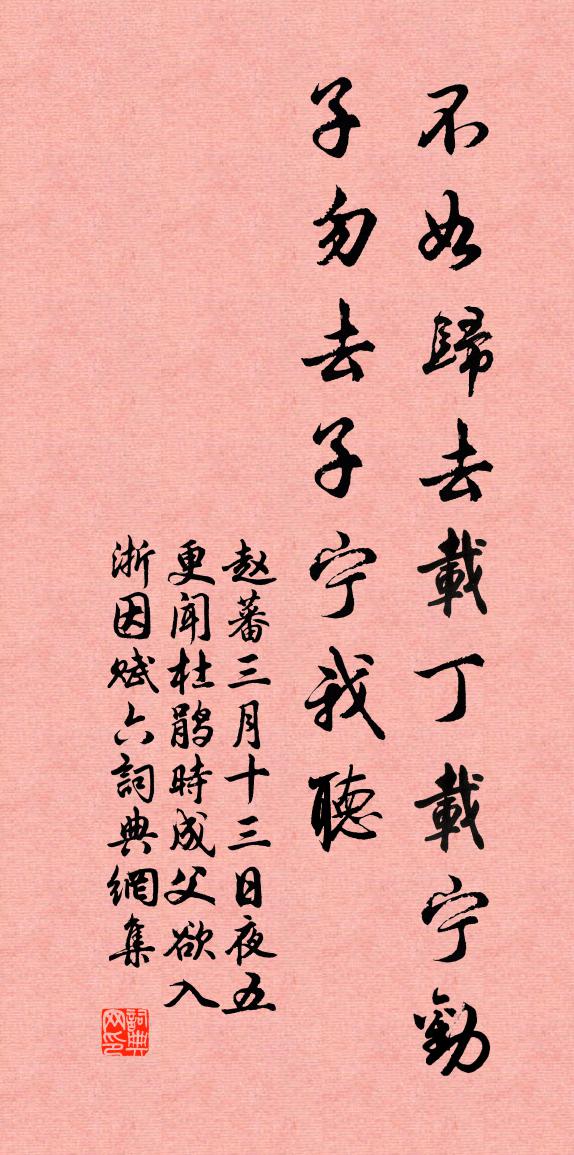 不如歸去載丁載宁勸
子勿去子宁我聽
赵蕃三月十三日夜五
更闻杜鹃時成父欲入
浙因赋六詞典網集
詞典网印